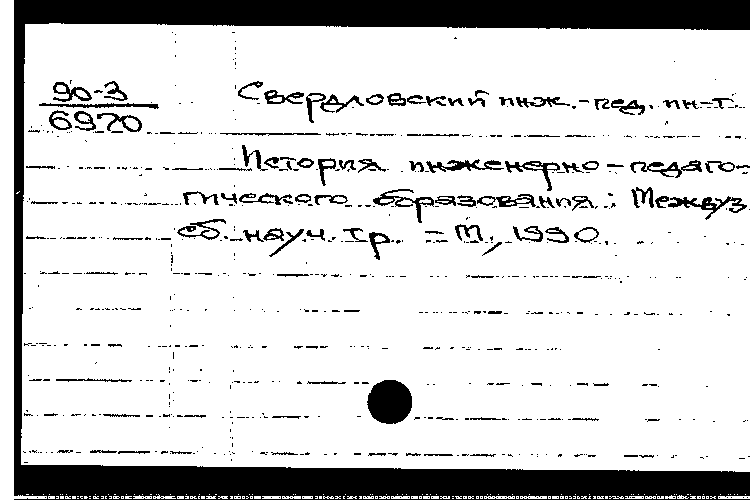 90-3
6970
Свердловский инж.-пед. ин-т.
История инженерно-педаго-
гического образования: Межвуз.
сб. науч. тр. – М., 1990.